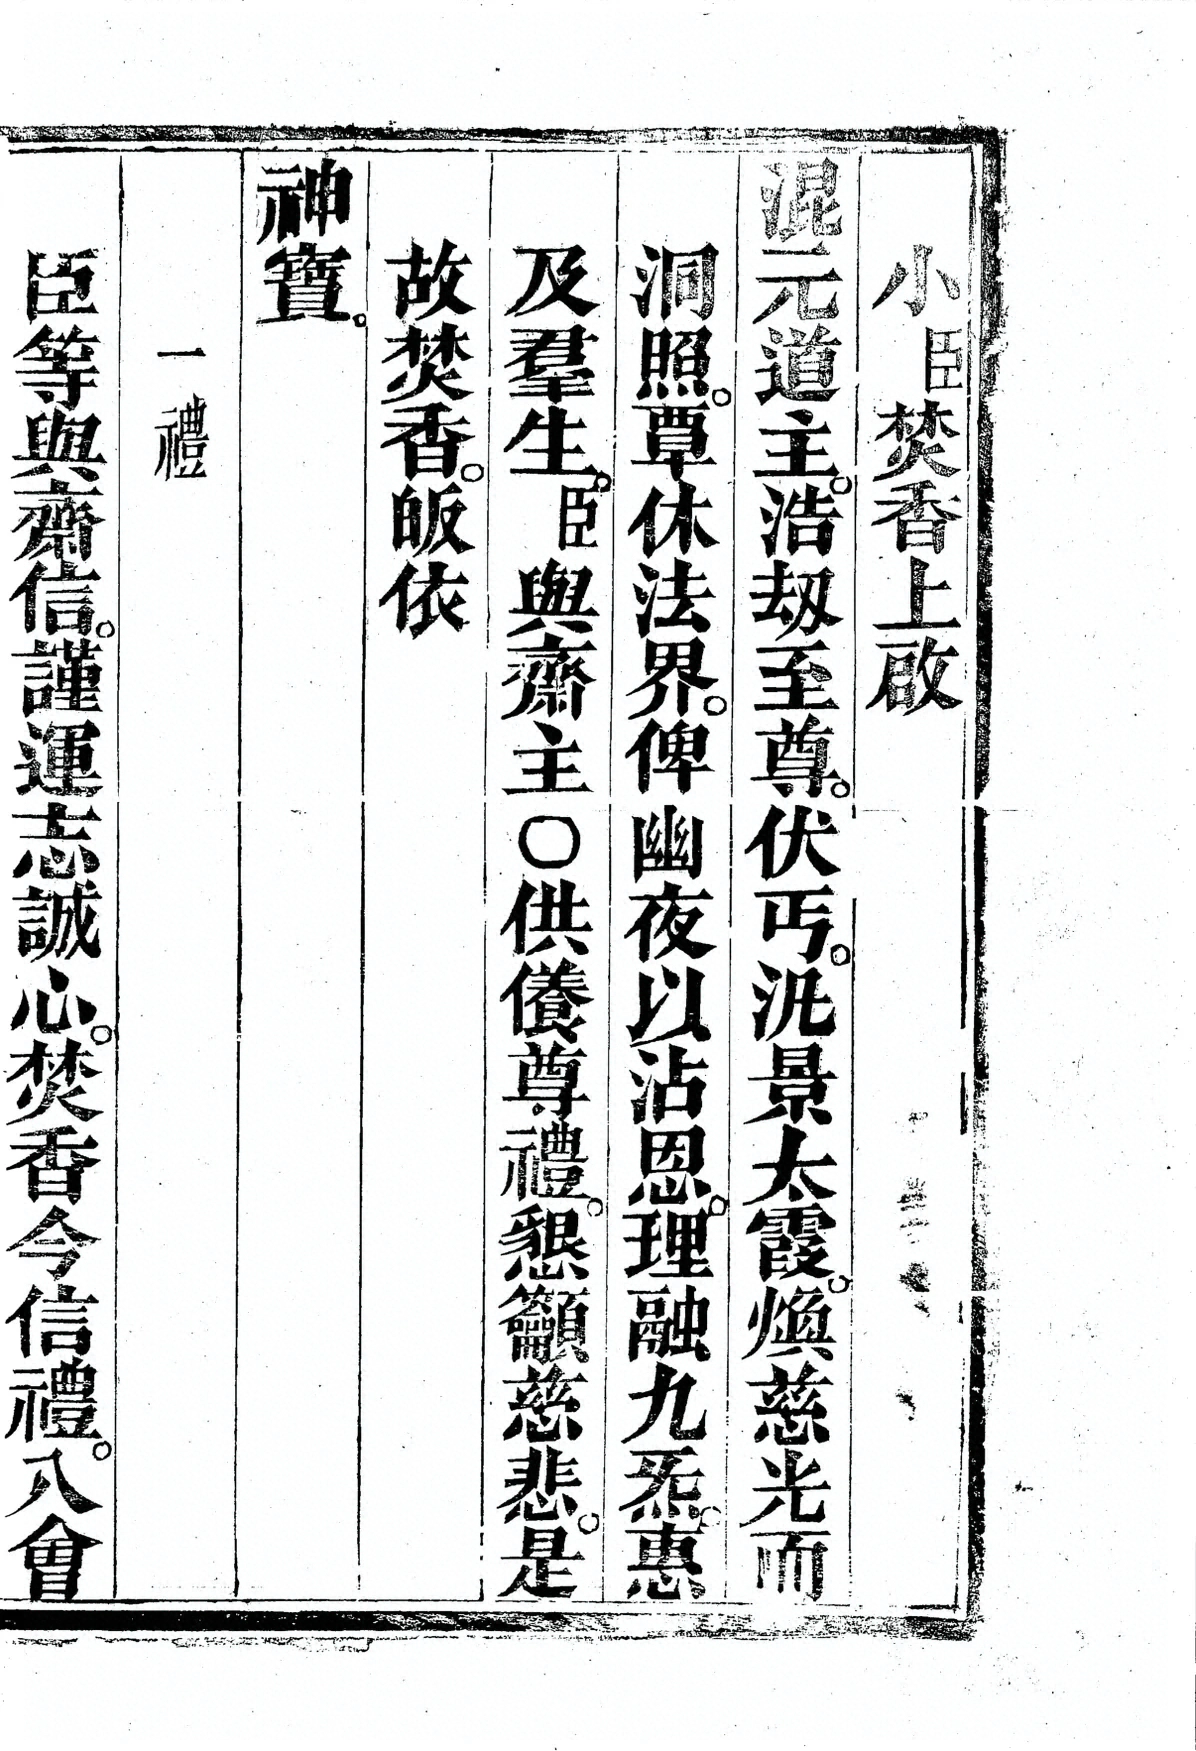 小臣焚香上啟
混元道主。浩刼至尊。伏丐。汎景太霞。煥慈光而
洞照。覃休法界。俾幽夜以沾恩。理融九炁。惠
及羣生。臣與齋主〇供養尊禮。懇籲慈悲。是
故焚香。皈依
神寶。
一禮
臣等與齋信。謹運志誠心。焚香今信禮。八會